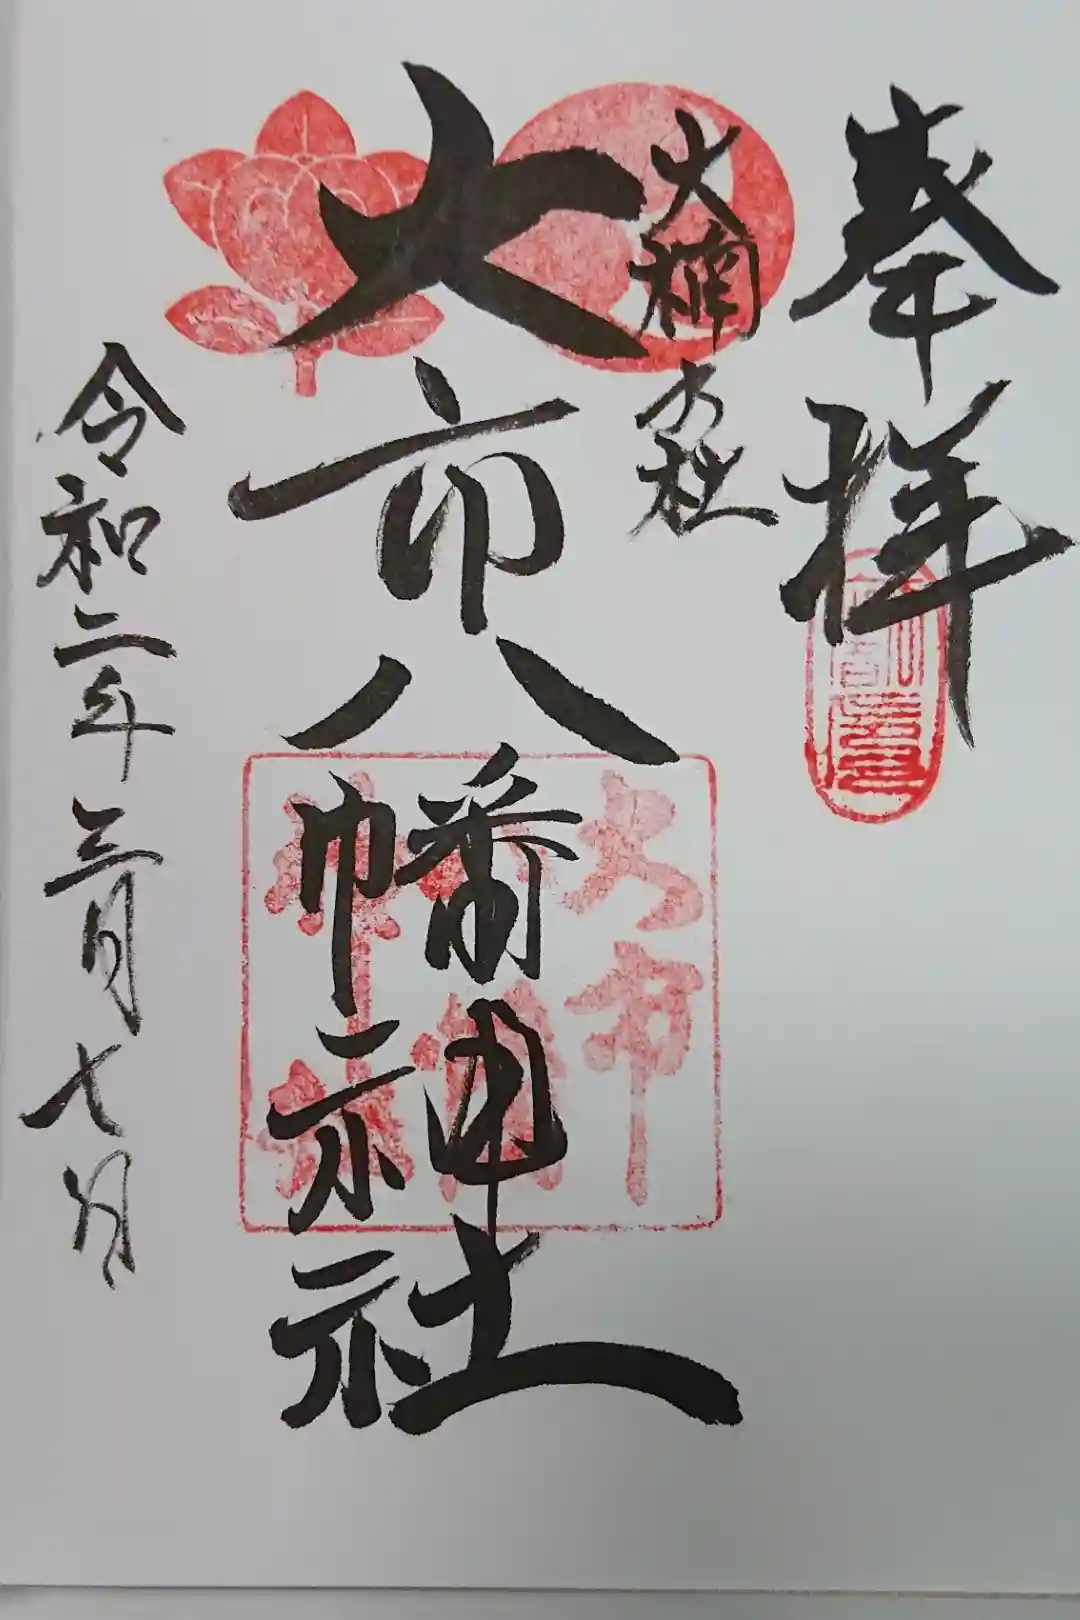 奉拝
大楠の社
大市八幡神社
令和二年三月七日
大市
八幡
神社